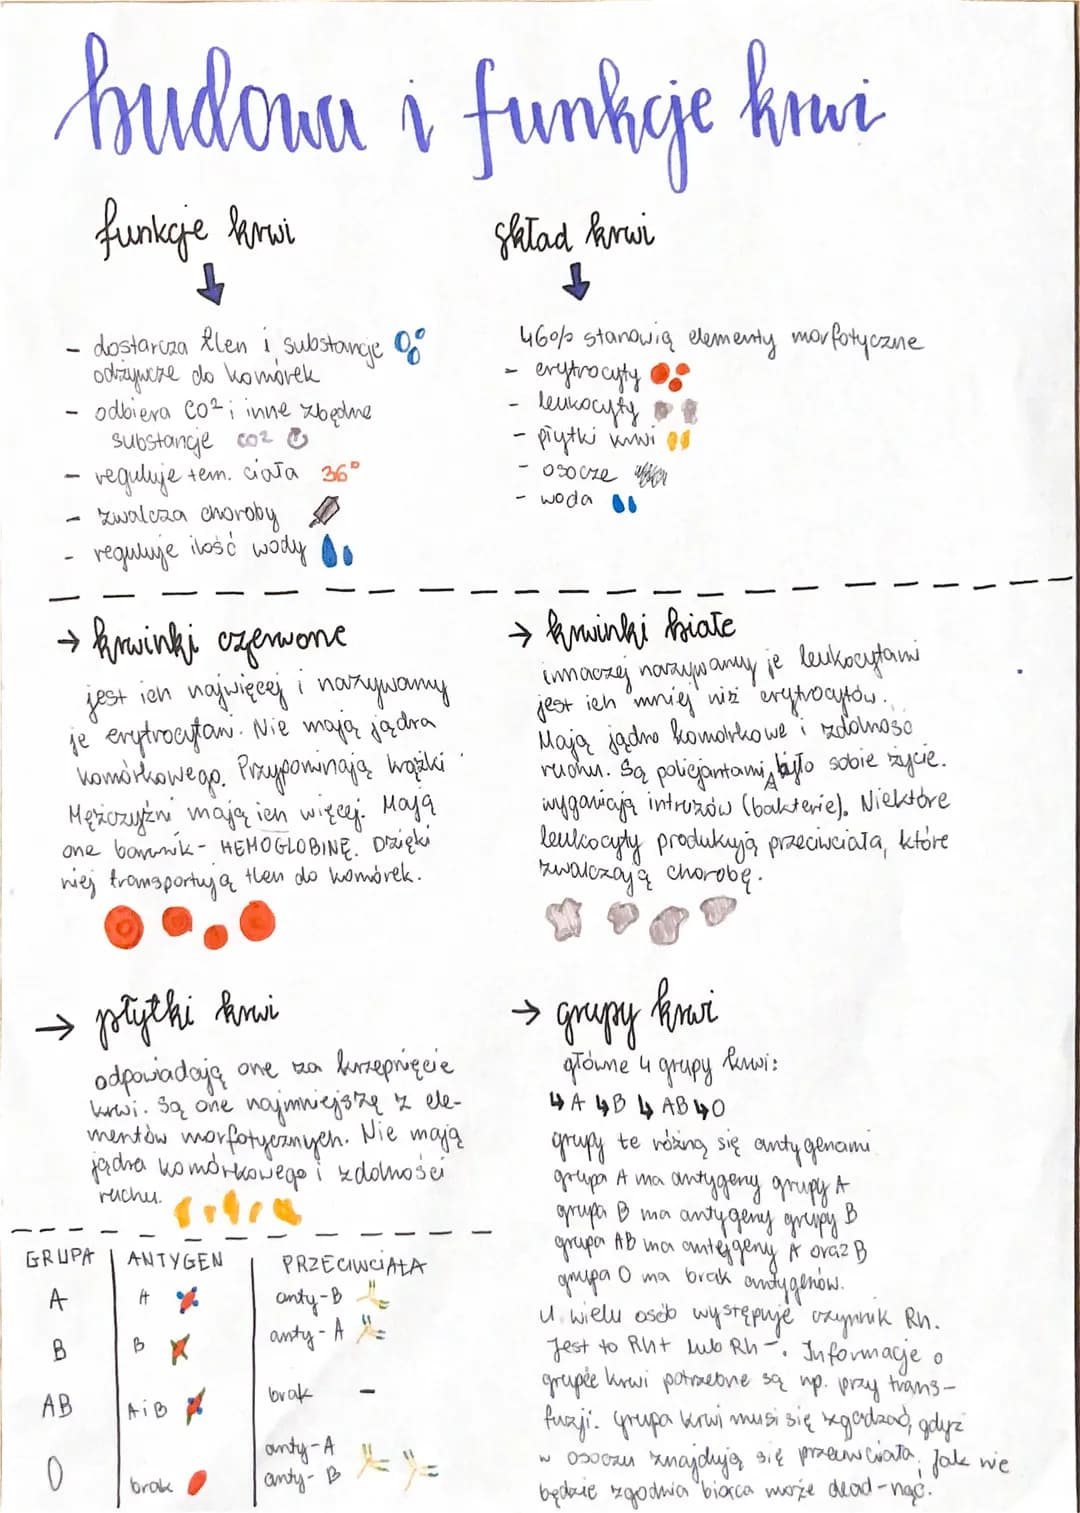 budowa i funkcje krwi
funkcje krwi
- dostarcza tlen i substancje
odżywcze do komórek
- odbiera CO2 i inne zbędne
substancje CO2
- reguluje tem. ciała 36°
- zwalcza choroby
- reguluje ilość wody
skład krwi
46% stanowią elementy morfotyczne
- erytrocyty
- leukocyty
- płytki krwi
- osocze
- woda
→ krwinki czerwone
jest ich najwięcej i nazywamy
je erytrocytami. Nie mają jądra
komórkowego. Przypominają krążki
Mężczyźni mają ich więcej. Mają
one barwnik - HEMOGLOBINĘ. Dzięki
niej transportują tlen do komórek.
→ krwinki białe
inaczej nazywamy je leukocytami
jest ich mniej niż erytrocytów.
Mają jądro komórkowe i zdolność
ruchu. Są policjantami, było sobie życie.
wyganiają intruzów (bakterie). Niektóre
leukocyty produkują przeciwciała, które
zwalczają chorobę.
→ płytki krwi
odpowiadają one za krzepnięcie
krwi. Są one najmniejszę z ele-
mentów morfotycznych. Nie mają
jądra komórkowego i zdolności
ruchu.
→ grupy krwi
główne 4 grupy krwi:
↳ A ↳ B ↳ AB ↳ 0
grupy te różną się antygenami
grupa A ma antygeny grupy A
grupa B ma antygeny grupy B
grupa AB ma antygeny A oraz B
grupa 0 ma brak antygenów.
U wielu osób występuje czynnik Rh.
Jest to Rh+ lub Rh-. Informacje o
grupie krwi potrzebne są np. przy trans-
fuzji. Grupa krwi musi się zgadzać, gdyż
w osoczu znajdują się przeciwciała. Jak nie
będzie zgodna biorca może dead-nąć.
GRUPA | ANTYGEN | PRZECIWCIAŁA
A A anty-B
B B anty-A
AB A i B brak -
0 brak anty-A
anty-B